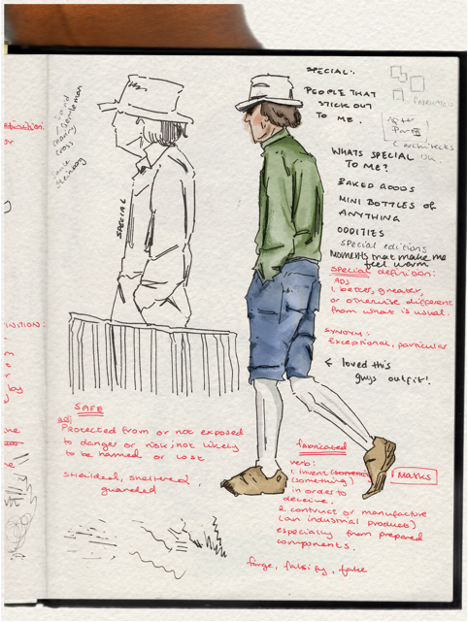 SPECIAL:
PEOPLE THAT
STICK OUT
TO ME.
WHATS SPECIAL
TO ME?
BAKED GOODS
MINI BOTTLES OF
ANYTHING
ODDITIES
special editions
MOMENTS that make me
feel warm
special definition:
ADJ
1. better, greater,
or otherwise different
from what is usual.
SYNONYM:
Exceptional, particular
← loved this
guys outfit!
SPECIAL
SAFE
adj
Protected from or not exposed
to danger or risk; not likely
to be harmed or lost.
sheilded, sheltered,
guarded
fabricated
verb:
1. invent
(something)
in order to
deceive.
2. construct or manufacture
(an industrial products)
especially from prepared
components.
forge, falsify, fake
MASKS